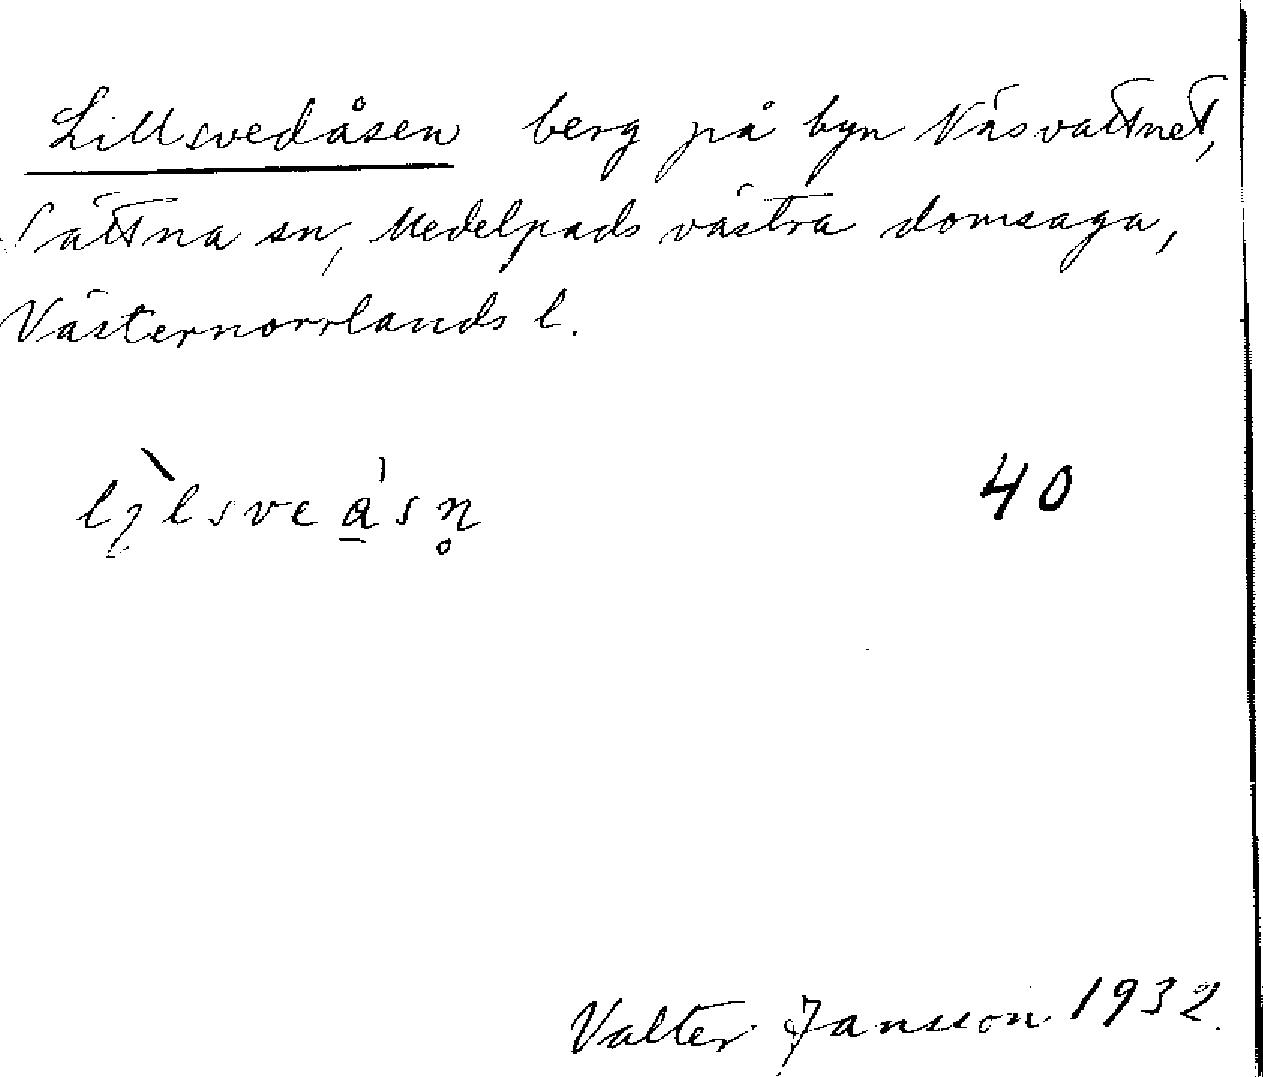 Lillsvedåsen berg på byn Näsvattnet,
Sättna sn, Medelpads västra domsaga,
Västernorrlands l.
40
Valter Jansson 1932.